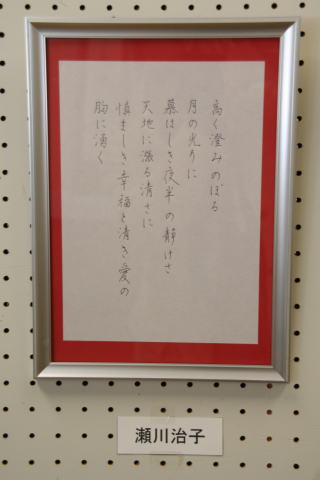 高く澄みのぼる
月の光りに
慕はしき夜半の静けさ
天地に漲る清さに
慎ましき幸福と清き愛の
胸に湧く
瀬川治子